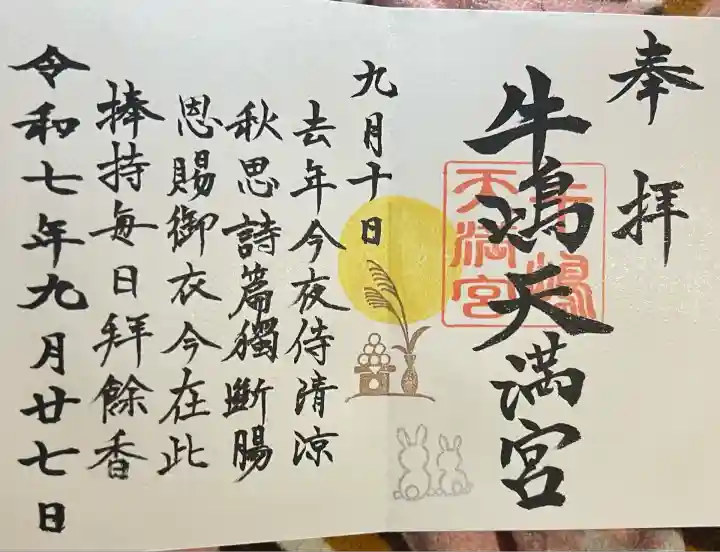 奉拝
牛嶋天満宮
牛嶋
天満宮
九月十日
去年今夜侍清凉
秋思詩篇獨斷腸
恩賜御衣今在此
捧持毎日拝餘香
令和七年九月廿七日